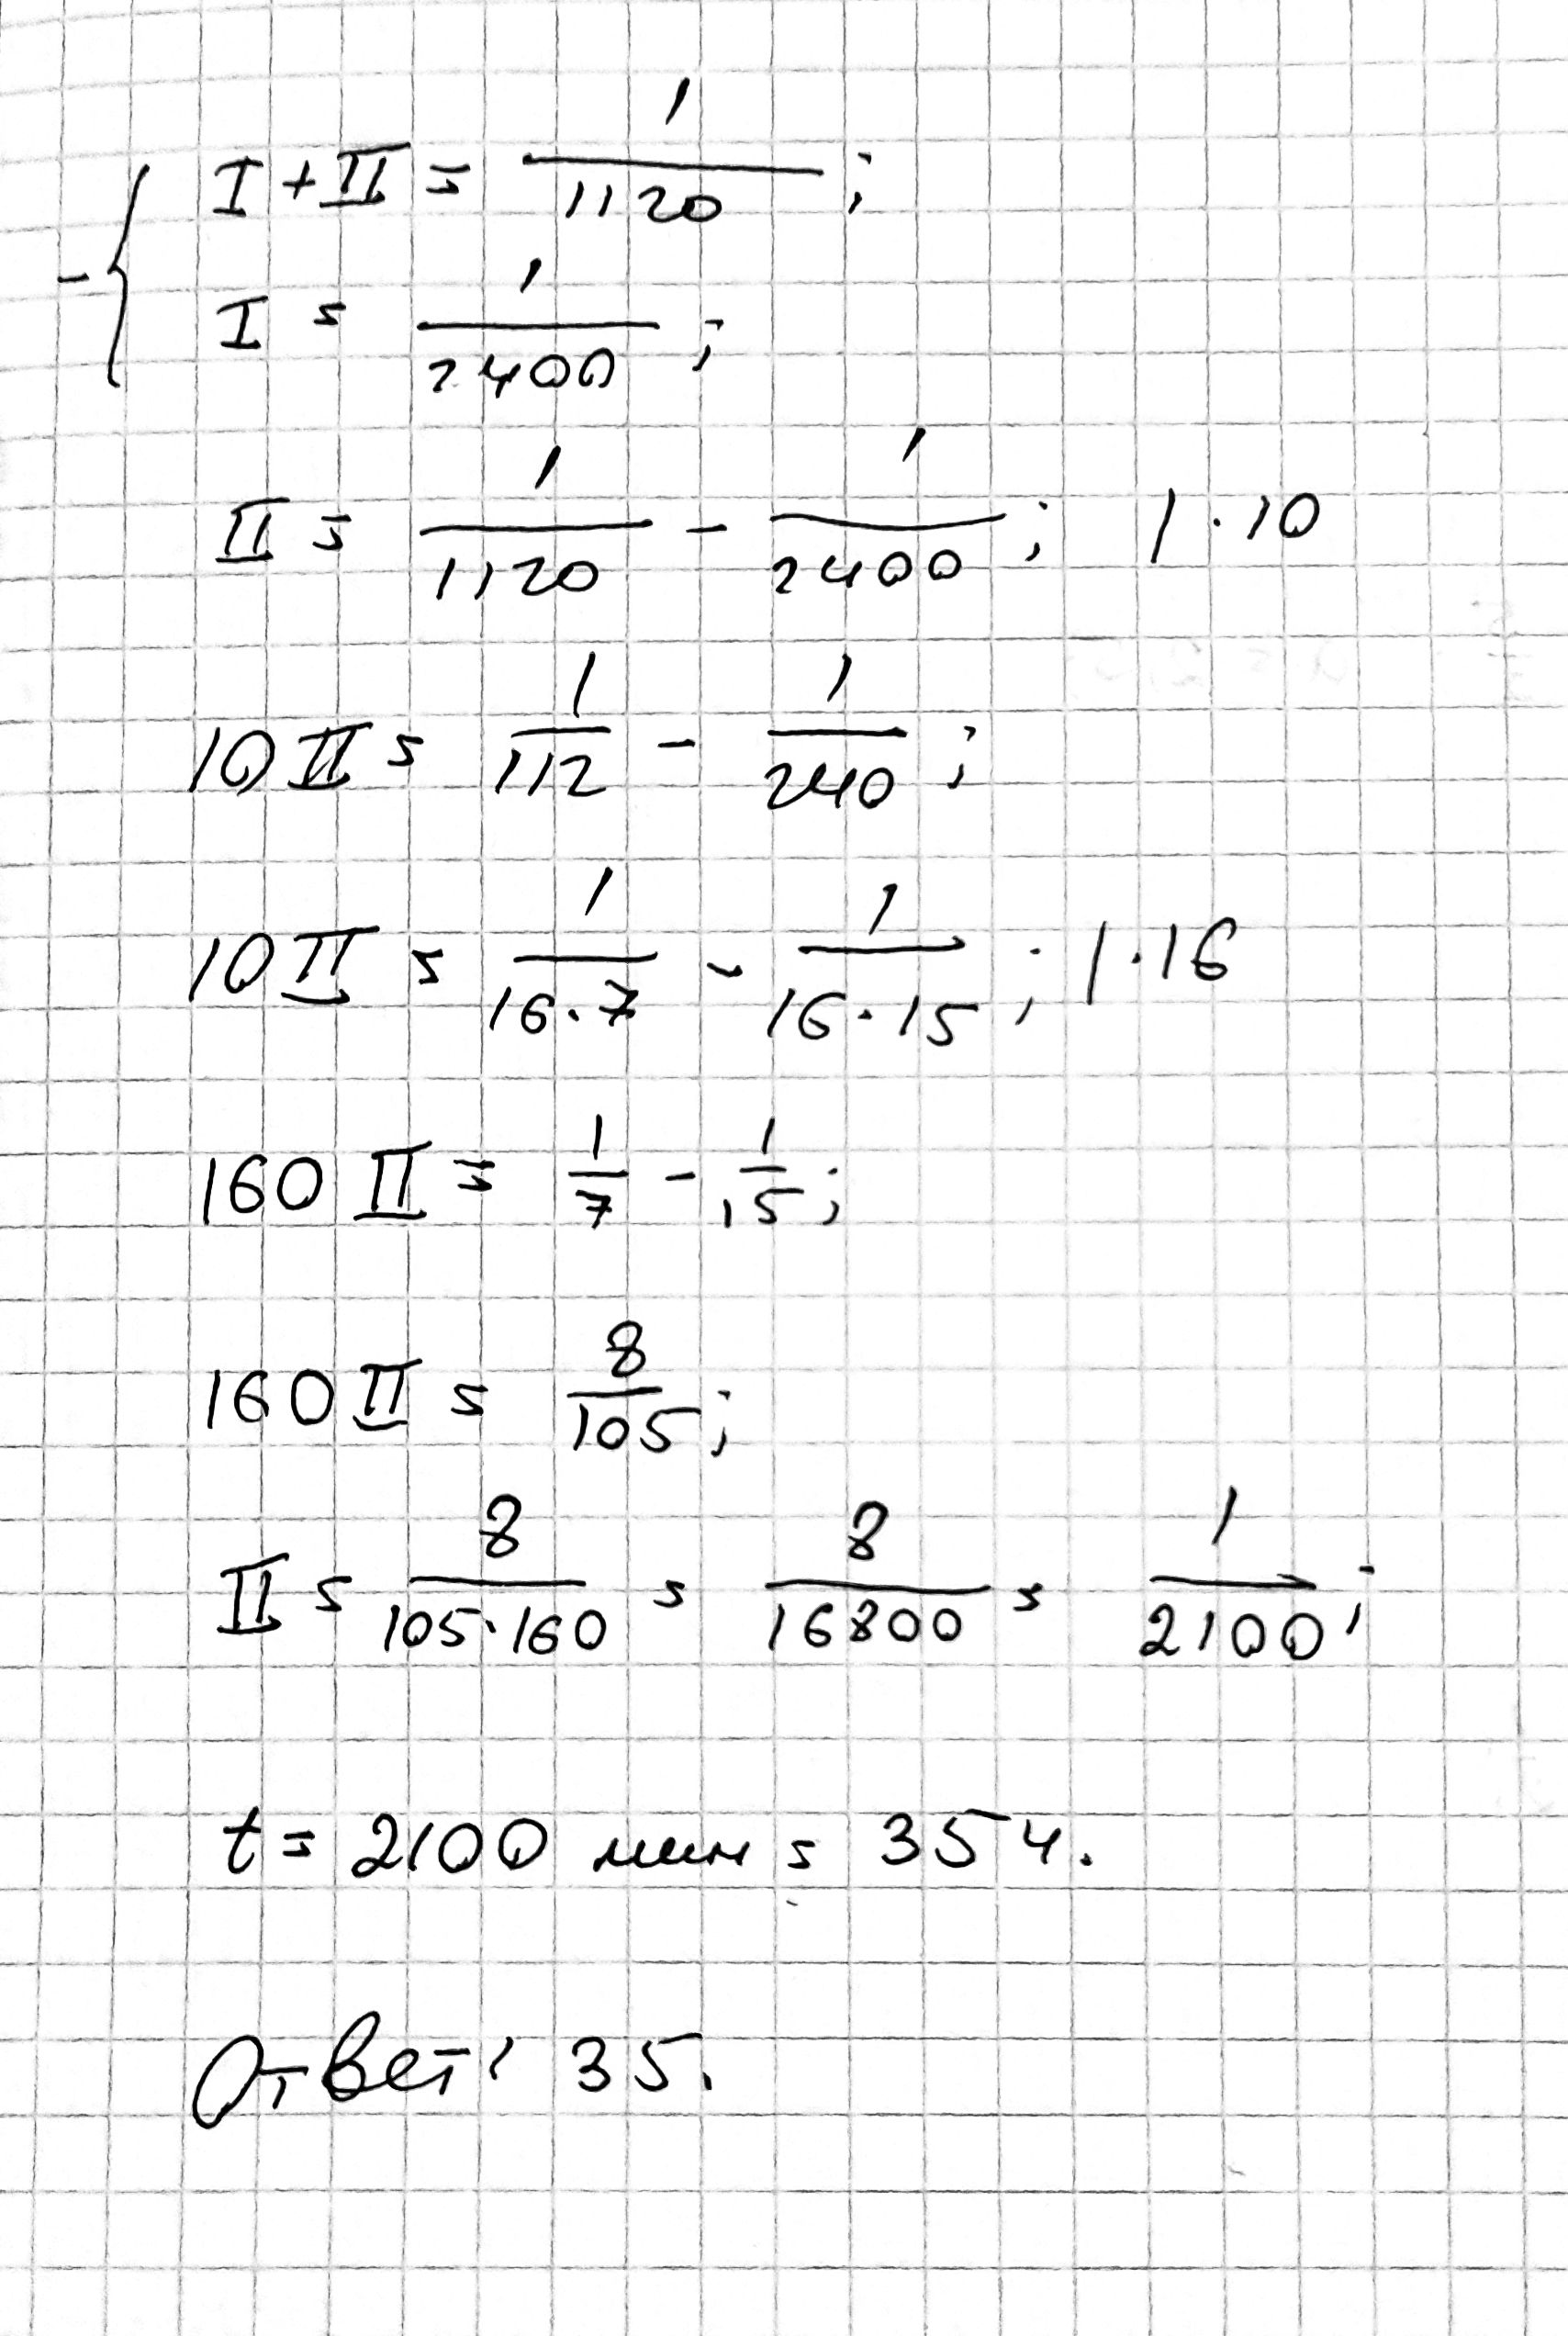 I + II = 1/1120;
I = 1/2400;
II = 1/1120 - 1/2400; | · 10
10 II = 1/112 - 1/240;
10 II = 1/(16·7) - 1/(16·15); | · 16
160 II = 1/7 - 1/15;
160 II = 8/105;
II = 8/(105·160) = 8/16800 = 1/2100;
t = 2100 мин = 35 ч.
Ответ: 35.